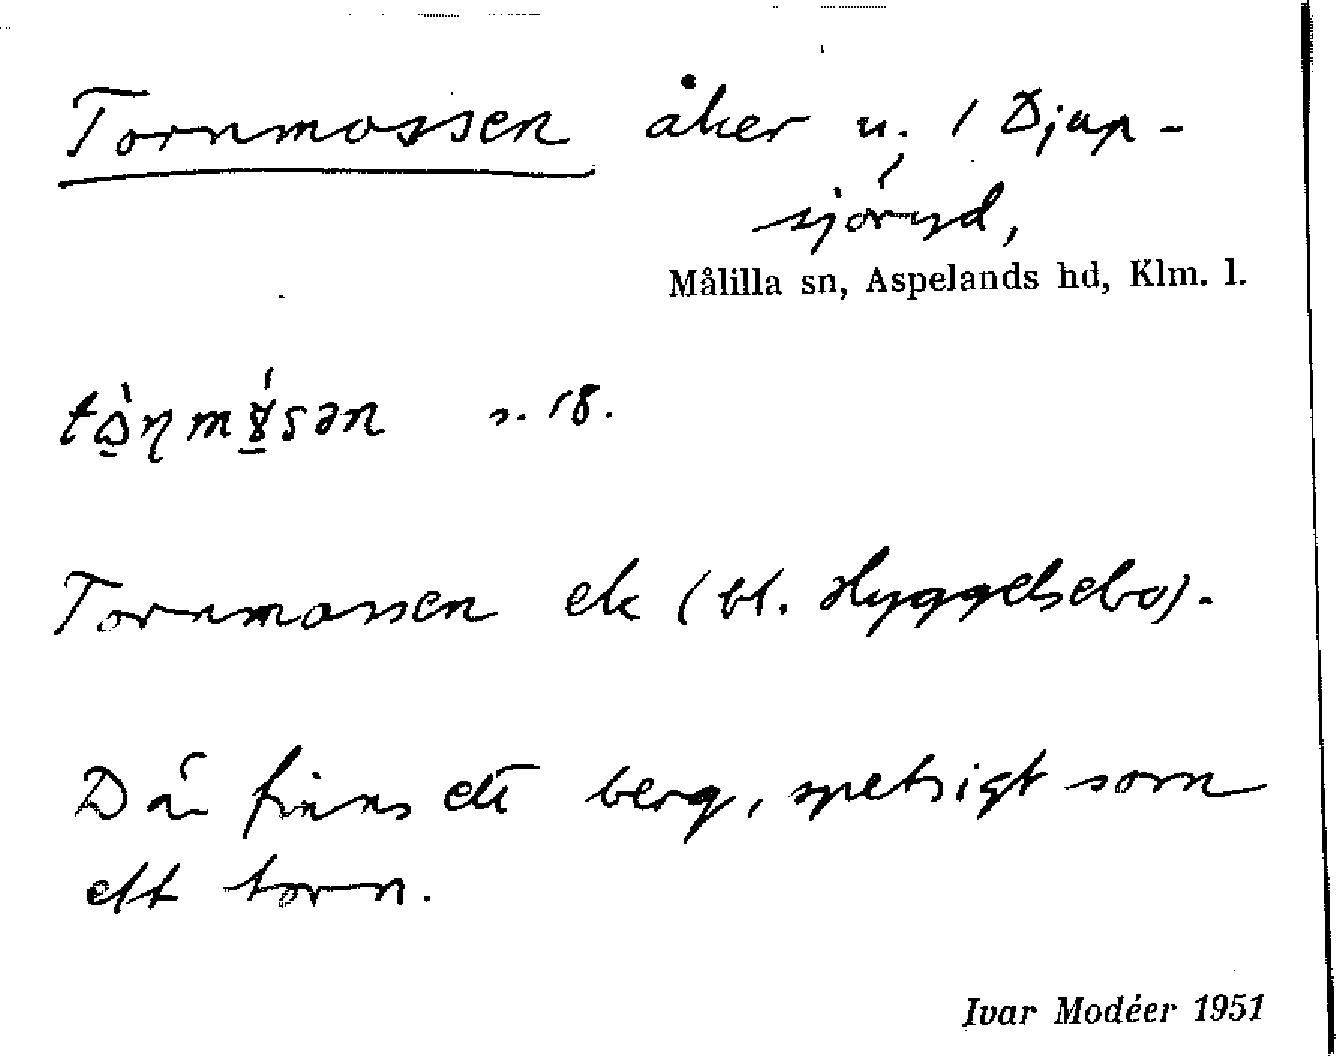 Tornmossen åker u. 1 Djup-
sjöryd,
Målilla sn, Aspelands hd, Klm. l.
s. 18.
Tornmossen ek (bl. Hyggelsebo).
Där finns ett berg, spetsigt som
ett torn.
Ivar Modéer 1951